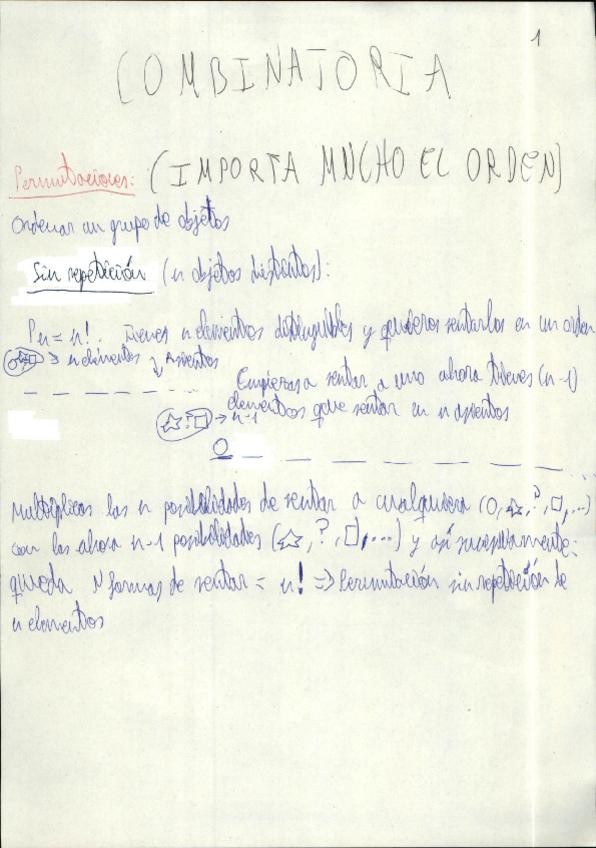 1
COMBINATORIA
Permutaciones: (IMPORTA MUCHO EL ORDEN)
Ordenar un grupo de objetos
Sin repetición (n objetos distintos):
Pn = n!. Tienes n elementos distinguibles y quieres sentarlos en un orden
→ n elementos ↓ Asientos
Empiezas a sentar a uno ahora tienes (n-1)
elementos que sentar en n asientos
→ n-1
Multiplicas las n posibilidades de sentar a cualquiera (O, ☆, ?, □, ...)
con las ahora n-1 posibilidades (☆, ?, □, ...) y así sucesivamente:
queda N formas de sentar = n! => Permutación sin repetición de
n elementos